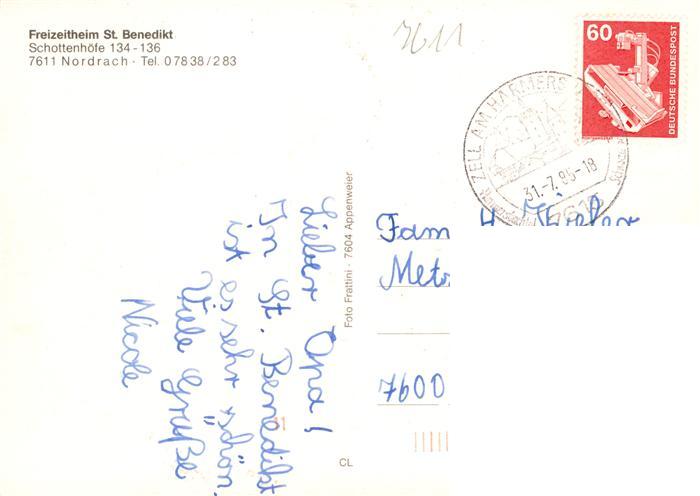 Freizeitheim St. Benedikt
Schottenhöfe 134-136
7611 Nordrach · Tel. 07838/283
7611
60
DEUTSCHE BUNDESPOST
ZELL AM HARMERS
31.-7.85-18
7615
Lieber Opa!
In St. Benedikt
ist es sehr schön.
Viele Grüße
Nicole
Foto Frattini · 7604 Appenweier
CL
Fam
Metz
7600